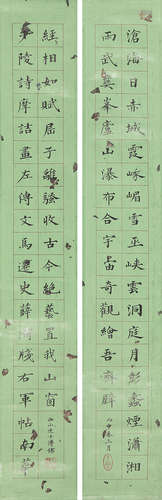 滄海日赤城霞峨嵋雪巫峽雲洞庭月彭蠡煙瀟湘
雨武夷峯廬山瀑布合宇宙奇觀繪吾齋壁
少陵詩摩詰畫左傳文馬遷史薛濤牋右軍帖南華
經相如賦屈子離騷收古今絕藝置我山窗